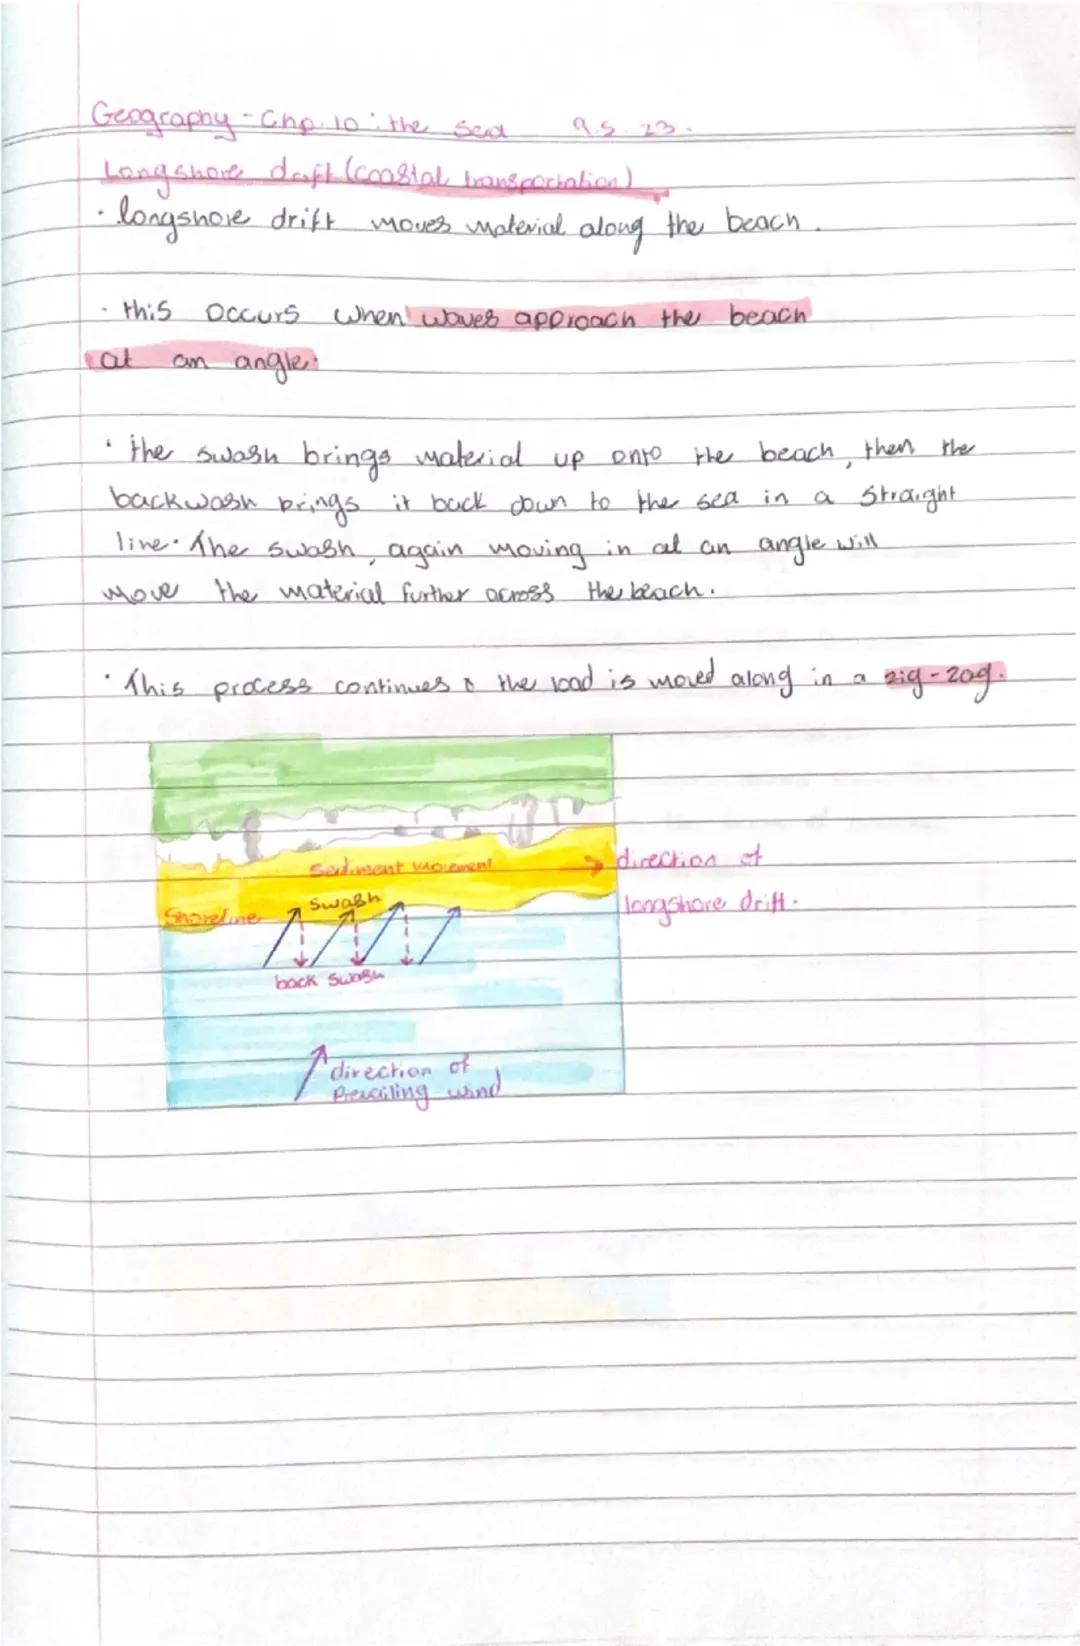 Geography - Chp. 10 : the sea 9.5.23.
Longshore draft (coastal transportation)
· longshore drift moves material along the beach.
· this occurs when waves approach the beach
at an angle.
· the swash brings material up onto the beach, then the
backwash brings it back down to the sea in a straight
line. The swash, again moving in at an angle will
move the material further across the beach.
· This process continues & the load is moved along in a zig-zag.
Sediment movement
direction of
longshore drift.
Swash
Shoreline
back swash
direction of
Prevailing wind